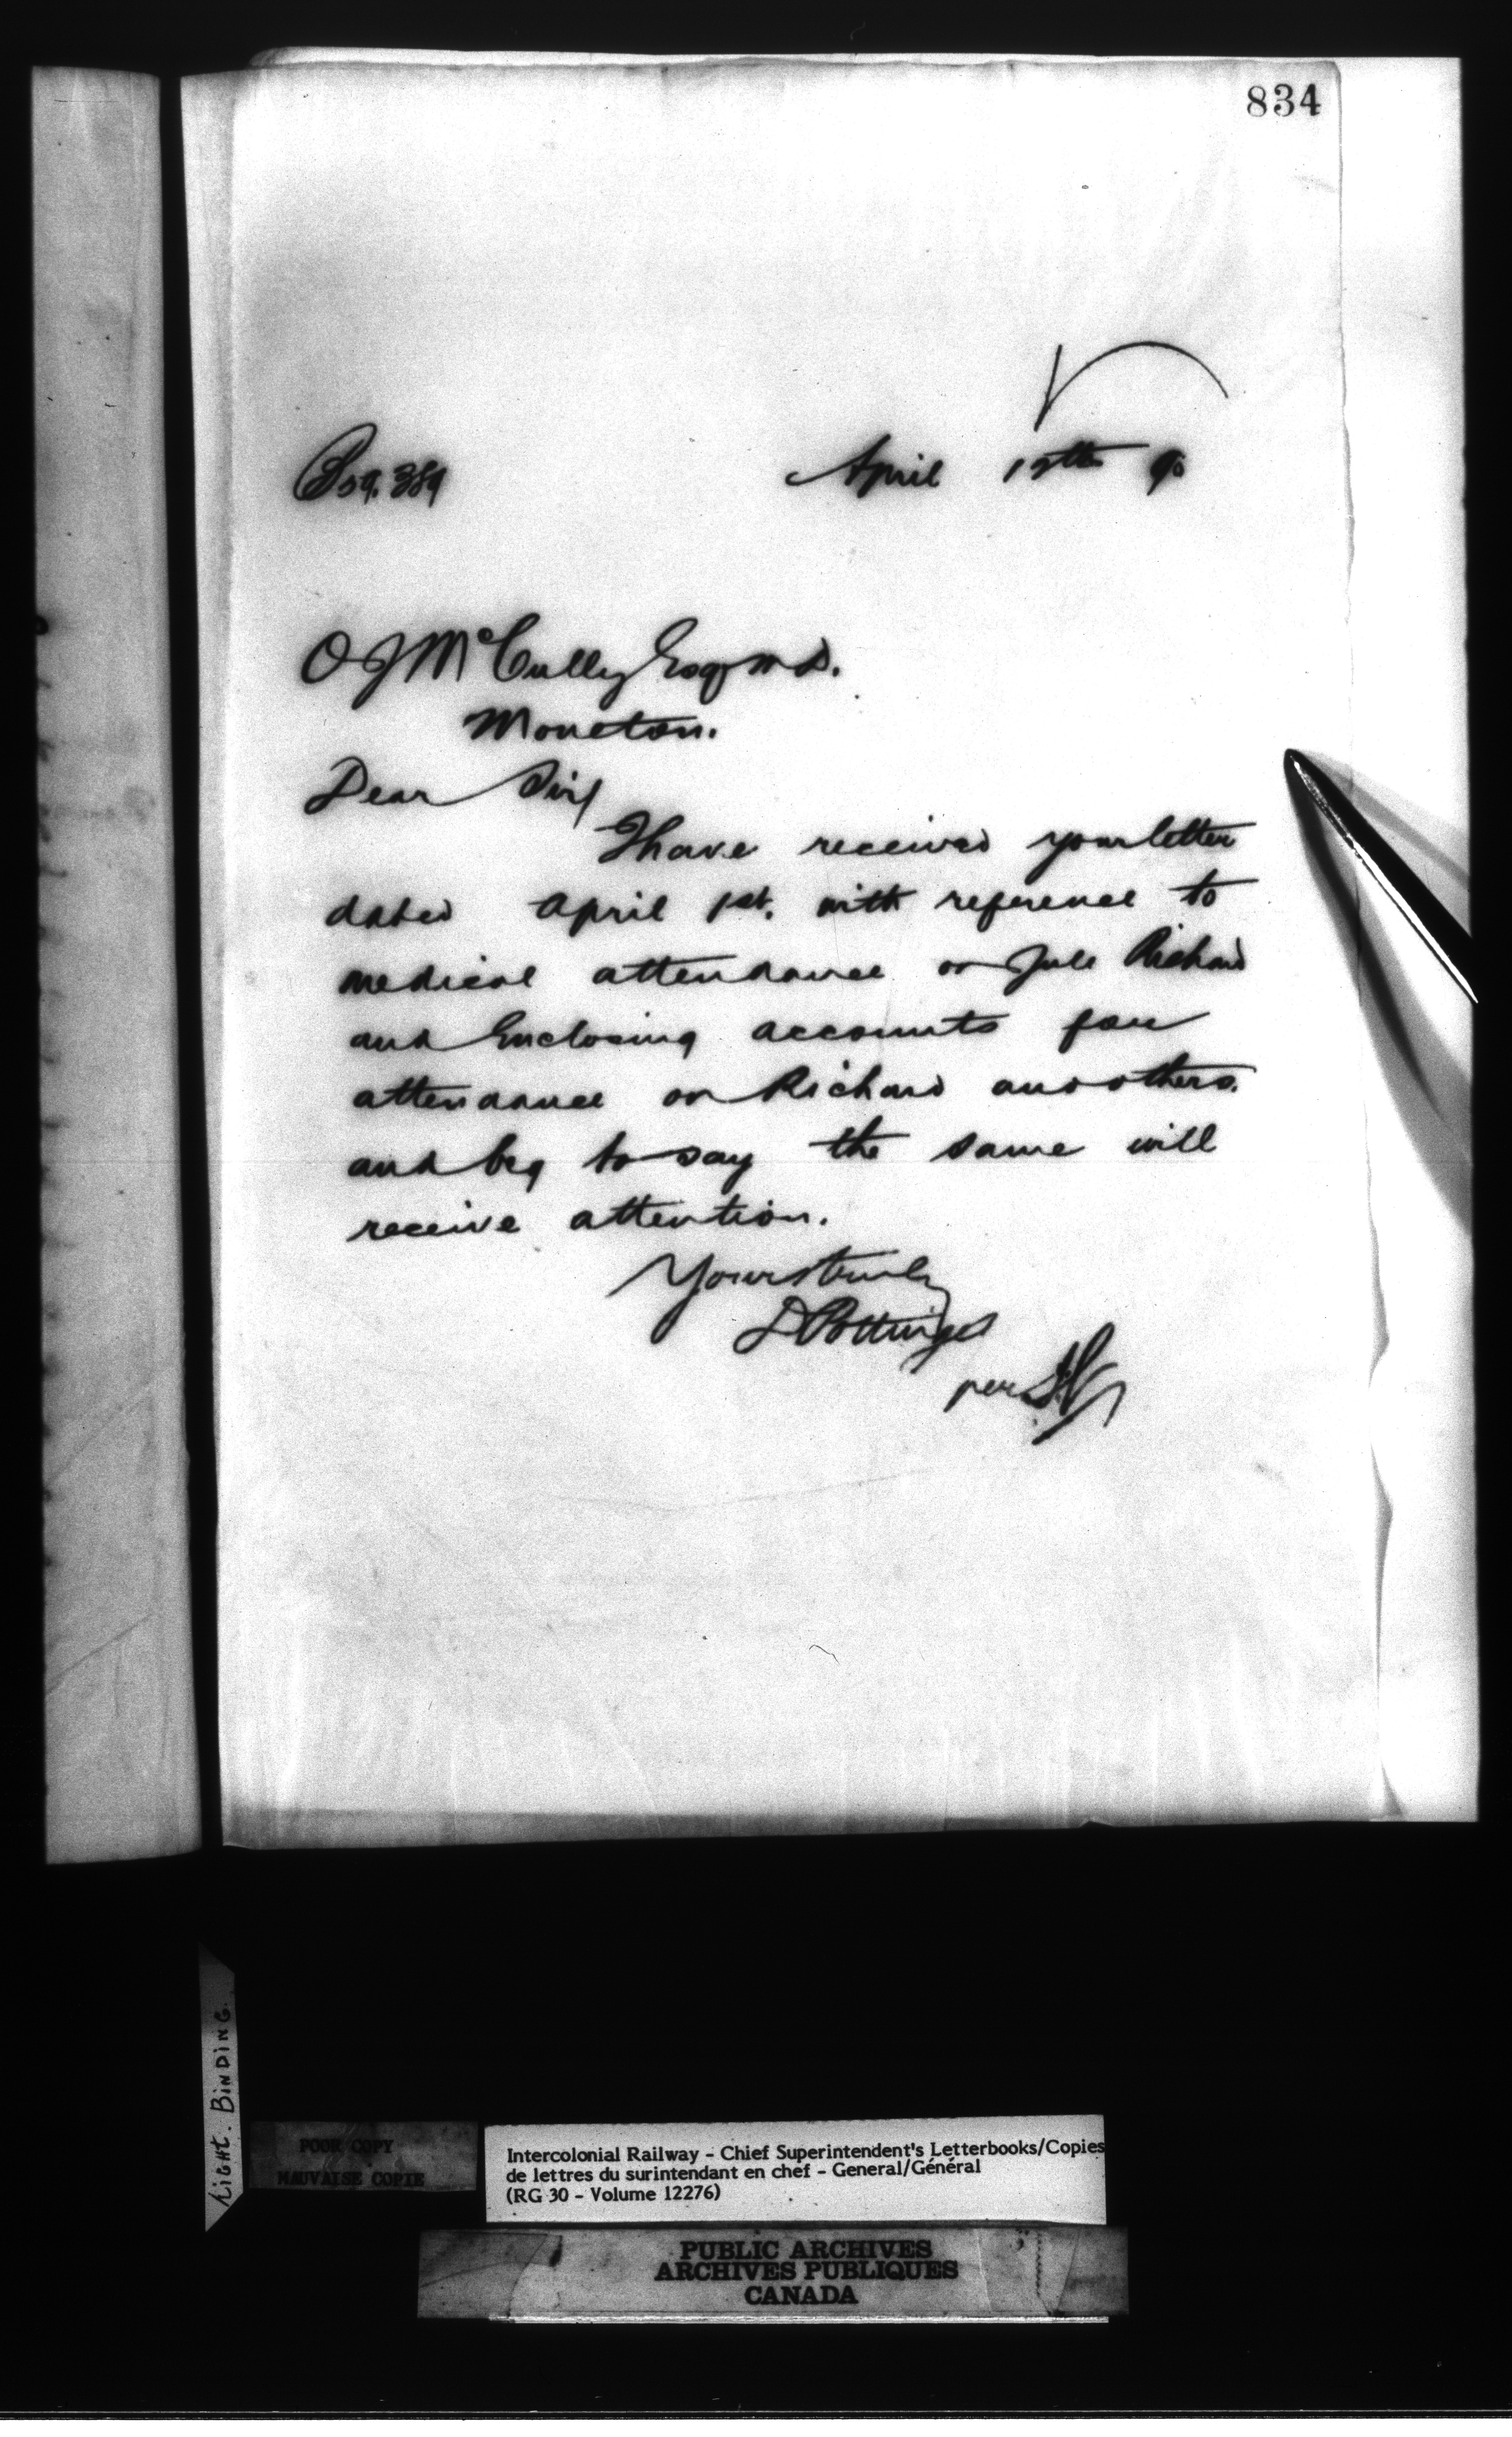 834
April 12th 90
O J McCully Esq M D.
Moncton.
Dear Sir
I have received your letter
dated April 1st. with reference to
medical attendance on Jule Richard
and Enclosing accounts for
attendance on Richard and others.
and beg to say the same will
receive attention.
Yours truly
D Pottinger
per
LIGHT. BINDING.
POOR COPY
MAUVAISE COPIE
Intercolonial Railway - Chief Superintendent's Letterbooks/Copies
de lettres du surintendant en chef - General/Général
(RG 30 - Volume 12276)
PUBLIC ARCHIVES
ARCHIVES PUBLIQUES
CANADA